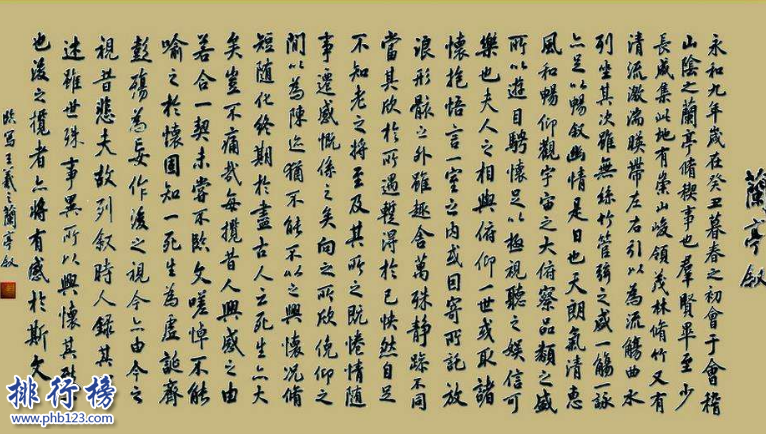 蘭亭叙
永和九年歲在癸丑暮春之初會于會稽
山陰之蘭亭脩稧事也羣賢畢至少
長咸集此地有崇山峻領茂林脩竹又有
清流激湍暎帶左右引以為流觴曲水
列坐其次雖無絲竹管絃之盛一觴一詠
亦足以暢叙幽情是日也天朗氣清惠
風和暢仰觀宇宙之大俯察品類之盛
所以遊目騁懷足以極視聽之娛信可
樂也夫人之相與俯仰一世或取諸
懷抱悟言一室之内或因寄所託放
浪形骸之外雖趣舍萬殊靜躁不同
當其欣於所遇暫得於己怏然自足
不知老之將至及其所之既惓情隨
事遷感慨係之矣向之所欣俛仰之
間以為陳迹猶不能不以之興懷況脩
短隨化終期於盡古人云死生亦大
矣豈不痛哉每攬昔人興感之由
若合一契未嘗不臨文嗟悼不能
喻之於懷固知一死生為虛誕齊
彭殤為妄作後之視今亦由今之
視昔悲夫故列叙時人錄其
述雖世殊事異所以興懷其致
也後之攬者亦將有感於斯文
臨寫王羲之蘭亭叙
排行榜
www.phb123.com